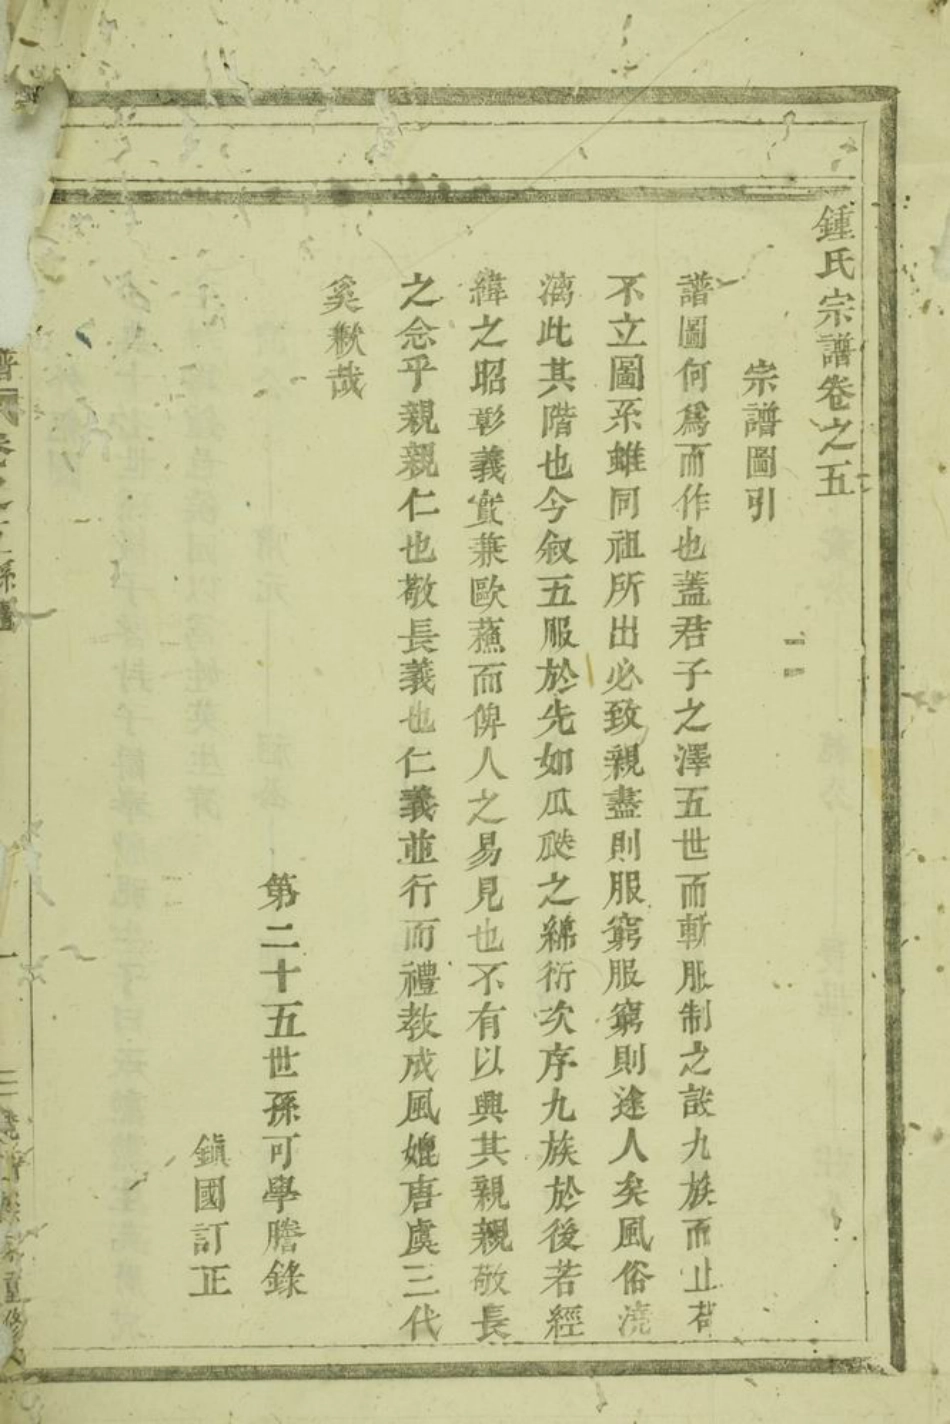 鍾氏宗譜卷之五
宗譜圖引
譜圖何爲而作也蓋君子之澤五世而斬服制之設九族而止苟
不立圖系雖同祖所出必致親盡則服窮服窮則途人矣風俗澆
漓此其階也今叙五服於先如瓜瓞之綿衍次序九族於後若經
緯之昭彰義實兼歐蘓而俾人之易見也不有以興其親親敬長
之念乎親親仁也敬長義也仁義並行而禮教成風媲唐虞三代
奚歉哉
第二十五世孫可學謄錄
鎮國訂正